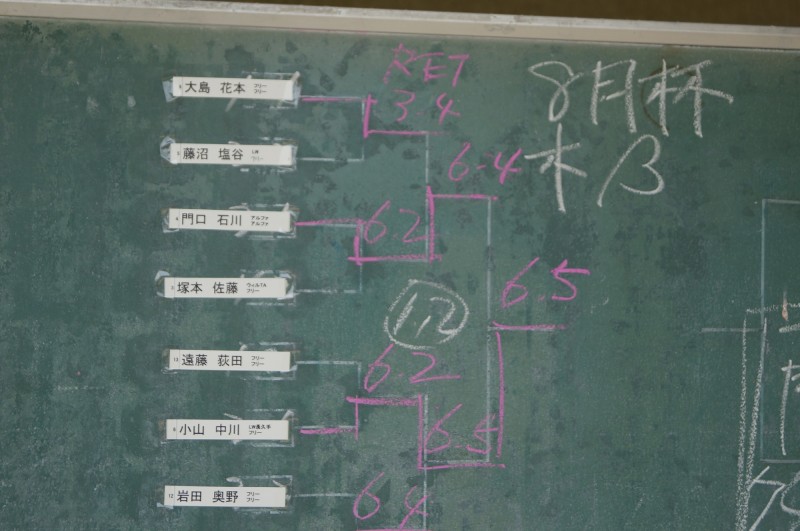 RET
3-4
8月杯
木 B
大島 花本 フリー フリー
藤沼 塩谷
6-4
門口 石川 アルファ アルファ
6.2
塚本 佐藤 ウィルTA フリー
6.5
1,2
遠藤 荻田 フリー フリー
6.2
小山 中川 LW長久手 フリー
6.5
岩田 奥野 フリー フリー
6.4